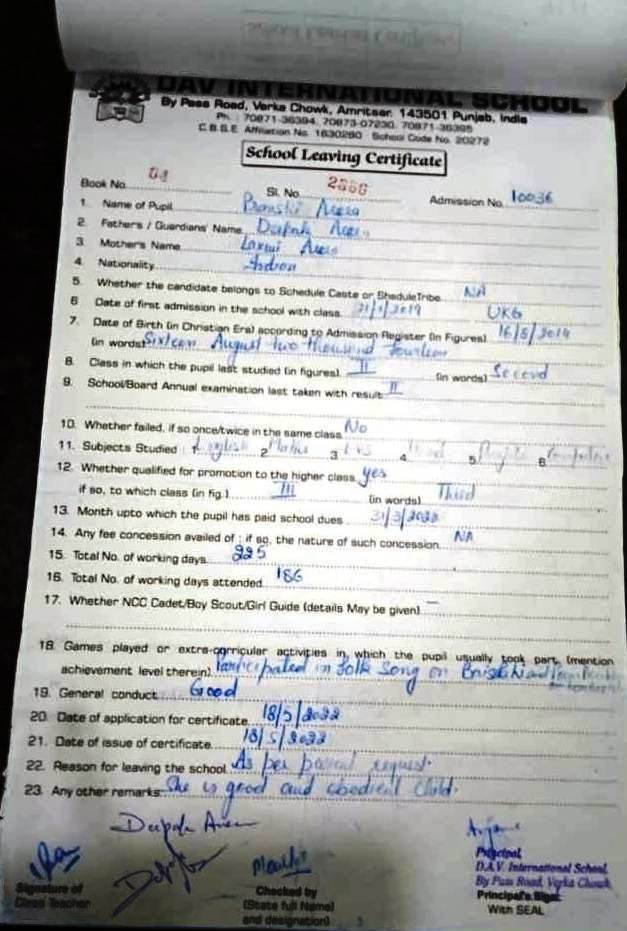 DAV INTERNATIONAL SCHOOL
By Pass Road, Verka Chowk, Amritsar. 143501 Punjab, India
Ph. : 70871-36394, 70873-07230, 70871-36395
C.B.S.E. Affiliation No. 1630280 School Code No. 20272
School Leaving Certificate
Book No. 04 Sl. No. 2366 Admission No. 10036
1. Name of Pupil Arora
2. Father's / Guardians' Name Deepak Arora
3. Mother's Name Laxmi Arora
4. Nationality Indian
5. Whether the candidate belongs to Schedule Caste or SheduleTribe NA
6 Date of first admission in the school with class 21/1/2019 UKG
7. Date of Birth (in Christian Era) according to Admission Register (in Figures) 16/8/2014
(in words) Sixteen August two thousand fourteen
8. Class in which the pupil last studied (in figures) II (in words) Second
9. School/Board Annual examination last taken with result II
10. Whether failed, if so once/twice in the same class No
11. Subjects Studied 1. English 2 Maths 3 EVS 4 5 6
12. Whether qualified for promotion to the higher class yes
if so, to which class (in fig.) III (in words) Third
13. Month upto which the pupil has paid school dues 31/3/2022
14. Any fee concession availed of ; if so, the nature of such concession NA
15. Total No. of working days 225
16. Total No. of working days attended 186
17. Whether NCC Cadet/Boy Scout/Girl Guide (details May be given) —
18. Games played or extra-corricular activities in which the pupil usually took part, (mention
achievement level therein) Participated in folk Song on
19. General conduct Good
20. Date of application for certificate 18/5/2022
21. Date of issue of certificate 18/5/2022
22. Reason for leaving the school As per request.
23. Any other remarks She is good and obedient child.
Deepak Arora
Principal
D.A.V. International School
By Pass Road, Verka Chowk
Signature of Checked by Principal's Signt.
Class Teacher (State full Name) With SEAL
and designation)